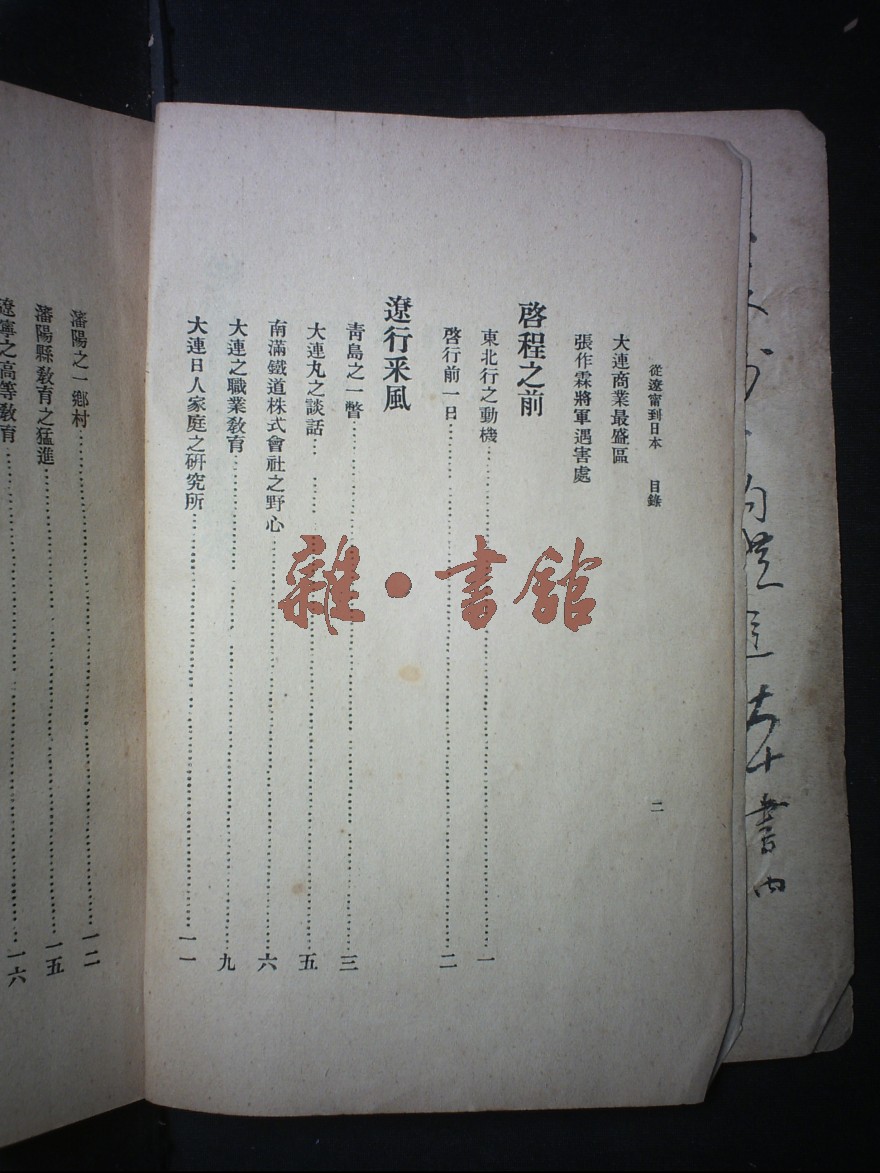 從遼甯到日本 目錄 二
大連商業最盛區
張作霖將軍遇害處
啓程之前
東北行之動機……一
啓行前一日……二
遼行采風
靑島之一瞥……三
大連丸之談話……五
南滿鐵道株式會社之野心……六
大連之職業敎育……九
大連日人家庭之硏究所……一一
瀋陽之一鄕村……一二
瀋陽縣敎育之猛進……一五
遼寧之高等敎育……一六
雜·書館
書內